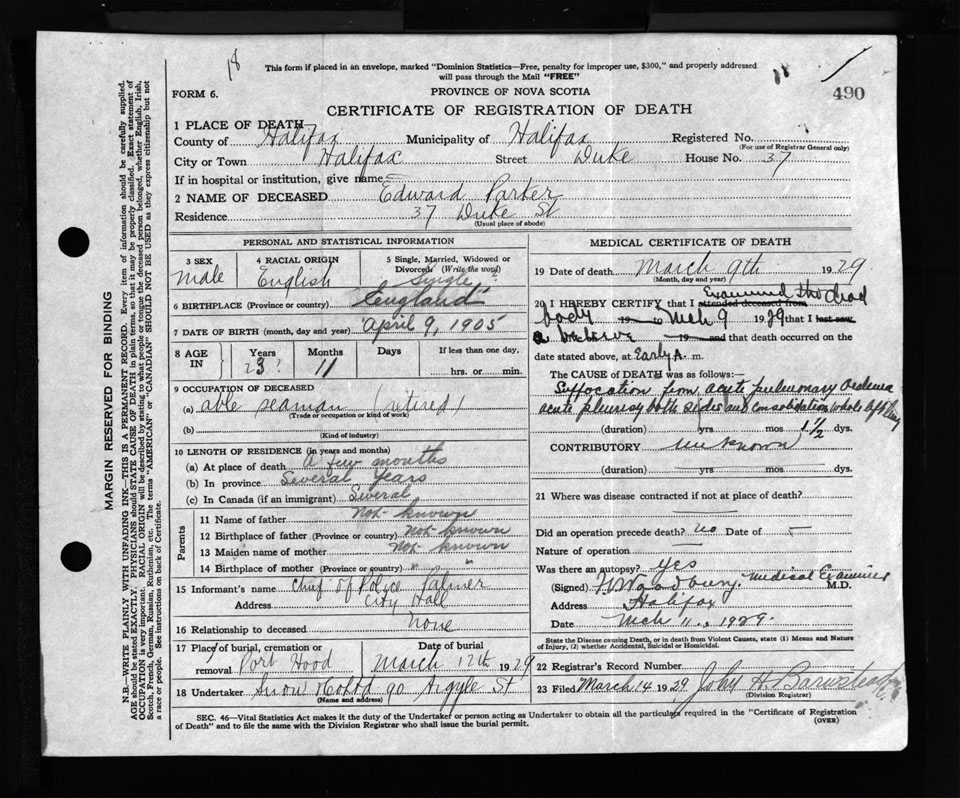 18
This form if placed in an envelope, marked "Dominion Statistics—Free, penalty for improper use, $300," and properly addressed
will pass through the Mail "FREE"
490
FORM 6.
PROVINCE OF NOVA SCOTIA
CERTIFICATE OF REGISTRATION OF DEATH
1 PLACE OF DEATH
County of Halifax Municipality of Halifax Registered No.
(For use of Registrar General only)
City or Town Halifax Street Duke House No. 37
If in hospital or institution, give name
2 NAME OF DECEASED Edward Parker
Residence 37 Duke St
(Usual place of abode)
PERSONAL AND STATISTICAL INFORMATION
3 SEX 4 RACIAL ORIGIN 5 Single, Married, Widowed or
Divorced (Write the word)
Male English Single ?
6 BIRTHPLACE (Province or country) "England"
7 DATE OF BIRTH (month, day and year) April 9, 1905
8 AGE IN Years Months Days If less than one day,
23? 11 hrs. or min.
9 OCCUPATION OF DECEASED
(a) able seaman (retired)
(Trade or occupation or kind of work)
(b)
(Kind of industry)
10 LENGTH OF RESIDENCE (in years and months)
(a) At place of death A few months
(b) In province Several years
(c) In Canada (if an immigrant) Several
Parents
11 Name of father Not known
12 Birthplace of father (Province or country) Not known
13 Maiden name of mother Not known
14 Birthplace of mother (Province or country) " "
15 Informant's name Chief of Police Palmer
Address City Hall
16 Relationship to deceased None
17 Place of burial, cremation or Date of burial
removal Port Hood March 12th 1929
18 Undertaker Snow & Co Ltd 90 Argyle St
(Name and address)
MEDICAL CERTIFICATE OF DEATH
19 Date of death March 9th 1929
(Month, day and year)
20 I HEREBY CERTIFY that I attended deceased from Examined the dead
body 19 to Mch 9 1929 that I last saw
19 and that death occurred on the
date stated above, at Early A. m.
The CAUSE of DEATH was as follows:
Suffocation from acute pulmonary oedema
acute pleurisy both sides and consolidation whole left lung
(duration) yrs mos 1 1/2 dys.
CONTRIBUTORY unknown
(duration) yrs mos dys.
21 Where was disease contracted if not at place of death?
Did an operation precede death? no Date of
Nature of operation
Was there an autopsy? yes
(Signed) Medical Examiner M.D.
Address Halifax
Date Mch 11, 1929.
State the Disease causing Death, or in death from Violent Causes, state (1) Means and Nature
of Injury, (2) whether Accidental, Suicidal or Homicidal.
22 Registrar's Record Number
23 Filed March 14 1929 John A. Barnstead
(Division Registrar)
SEC. 46—Vital Statistics Act makes it the duty of the Undertaker or person acting as Undertaker to obtain all the particulars required in the "Certificate of Registration
of Death" and to file the same with the Division Registrar who shall issue the burial permit.
(OVER)
MARGIN RESERVED FOR BINDING
N.B.—WRITE PLAINLY WITH UNFADING INK—THIS IS A PERMANENT RECORD. Every item of information should be carefully supplied.
AGE should be stated EXACTLY. PHYSICIANS should STATE CAUSE OF DEATH in plain terms, so that it may be properly classified. Exact statement of
OCCUPATION is very important. RACIAL ORIGIN will be described by stating to what people or tongue the deceased person belonged, whether English, Irish,
Scotch, French, German, Russian, Ruthenian, etc. The terms "AMERICAN" or "CANADIAN" SHOULD NOT BE USED as they express citizenship but not
a race or people. See instructions on back of Certificate.